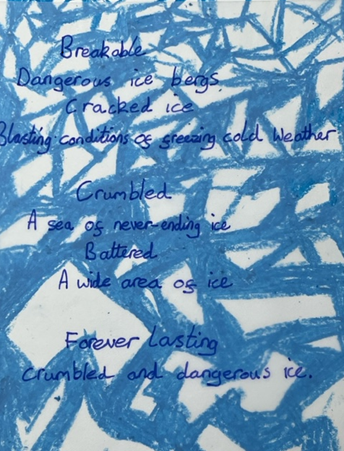 Breakable
Dangerous ice bergs
Cracked ice
Blasting conditions of freezing cold weather
Crumbled
A sea of never-ending ice
Battered
A wide area of ice
Forever Lasting
crumbled and dangerous ice.